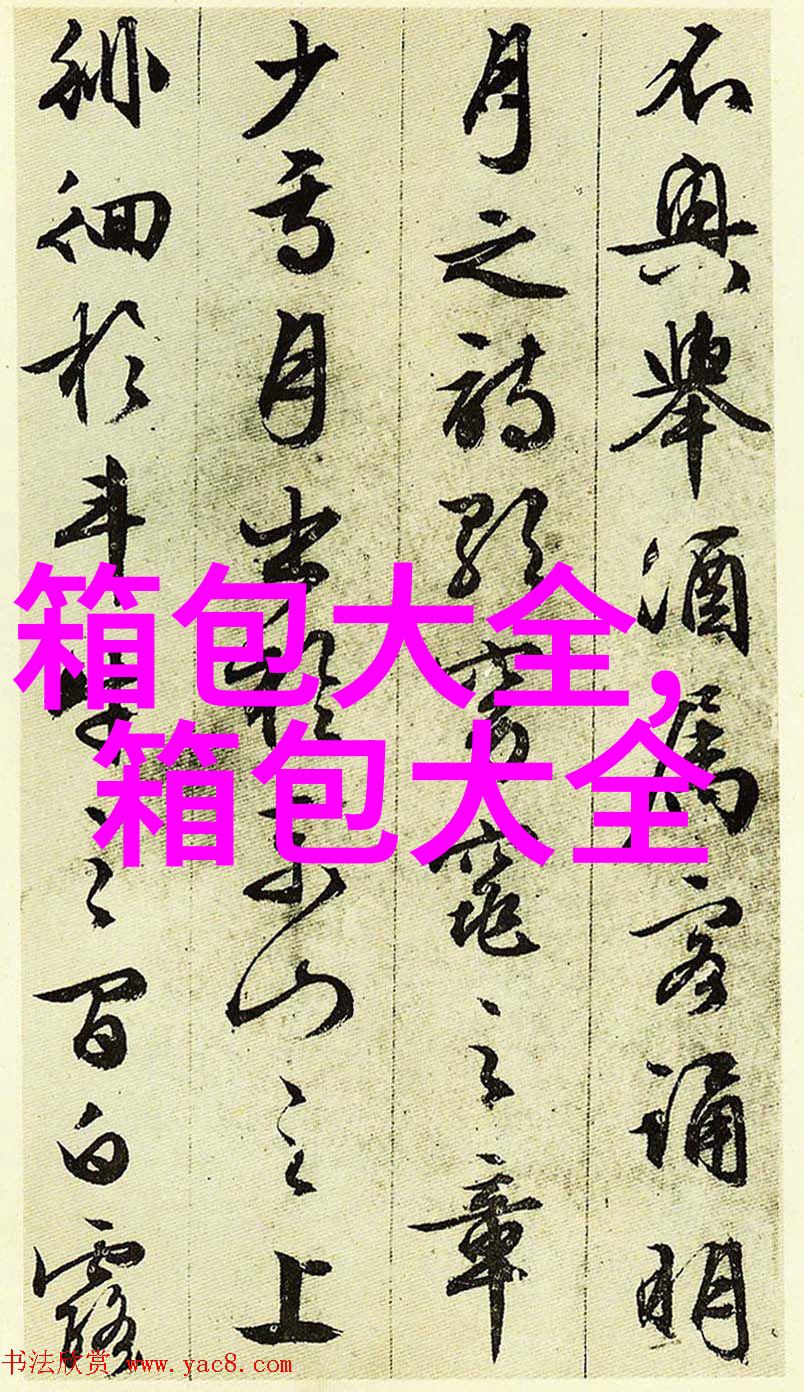 不興舉酒属客誦明
月之詩歌窈窕之章
少焉月出於東山之上
徘徊於斗牛之間白露
箱包大全,
箱包大全
书法欣赏 www.yac8.com